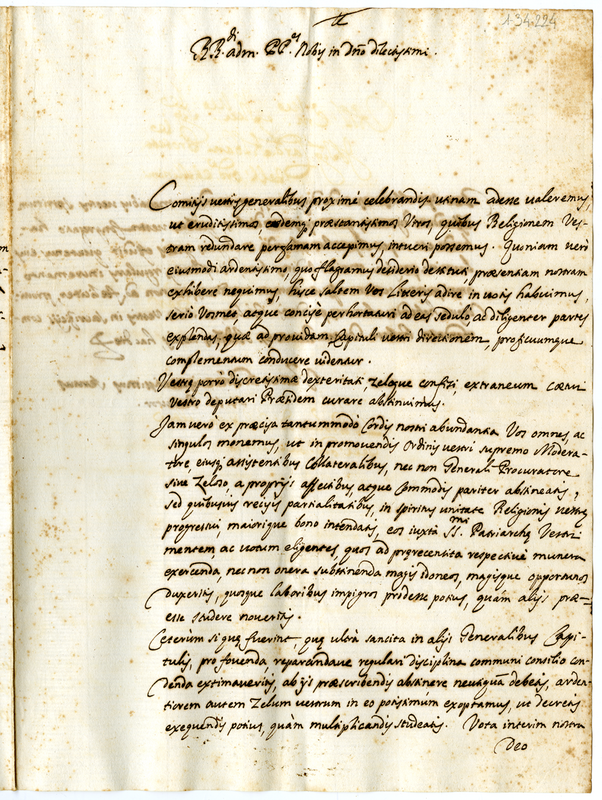 1.34.224
RR.di adm. PP.es Nobis in Dño dilectissimi.
Comitijs vestris generalibus proximè celebrandis utinam adesse valeremus,
ut eruditissimos, eosdemq; præstantissimos Viros, quibus Religionem Ves-
tram redundare perquam accepimus, intueri possemus. Quoniam verò
eiusmodi ardentissimo, quo flagramus desiderio destituti præsentiam nostram
exhibere nequimus, hisce saltem Vos Litteris adire in votis habuimus,
serio Vosmet, atque concisè perhortaturi ad eas sedulò, ac diligenter partes
explendas, quæ ad providam Capituli vestri directionem, proficuumque
complementum conducere videntur.
Vestrę porrò discretissimæ dexteritati, zeloque confisi, extraneum cœtui
Vestro deputari Præsidem curare abstinuimus.
Jam verò ex præcisa tantummodò Cordis nostri abundantia Vos omnes, ac
singulos monemus, ut in promovendis Ordinis vestri supremo Modera-
tore, eiusq; assistentibus Collateralibus, nec non Generali Procuratore
sive Zeloso, a proprijs affectibus, atque Commodis pariter abstineatis,
sed quibusvis reiectis partialitatibus, in spiritus unitate Religionis vestrę
progressui, maiorique bono intendatis, eos iuxtà SS.mi Patriarchę Vestri
mentem ac votum eligentes, quos ad pręrecensita respectivè munera
exercenda, nec non onera substinenda magis idoneos, magisque opportunos
Duxeritis, quosque laboribus impigros prodesse potius, quàm alijs præ-
esse studere noveritis.
Ceterum si quę fuerint quę ultrà sancita in alijs Generalibus Capi-
tulis, pro fovenda, reparandave regulari disciplina communi consilio con-
denda extimaveritis, ab ijs præscribendis abstinere nequaquã debeatis, arden-
tiorem autem Zelum vestrum in eo potissimùm exoptamus, ut decretis
exequendis potius, quàm multiplicandis studeatis. Vota interim nostra
Deo